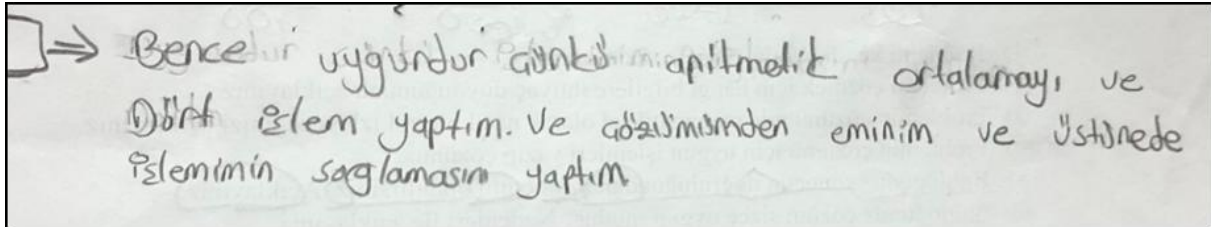 Bence uygundur çünkü apitmetik ortalamayı ve
Dört işlem yaptım. Ve çözümümden eminim ve üstünede
işlemimin sağlamasını yaptım